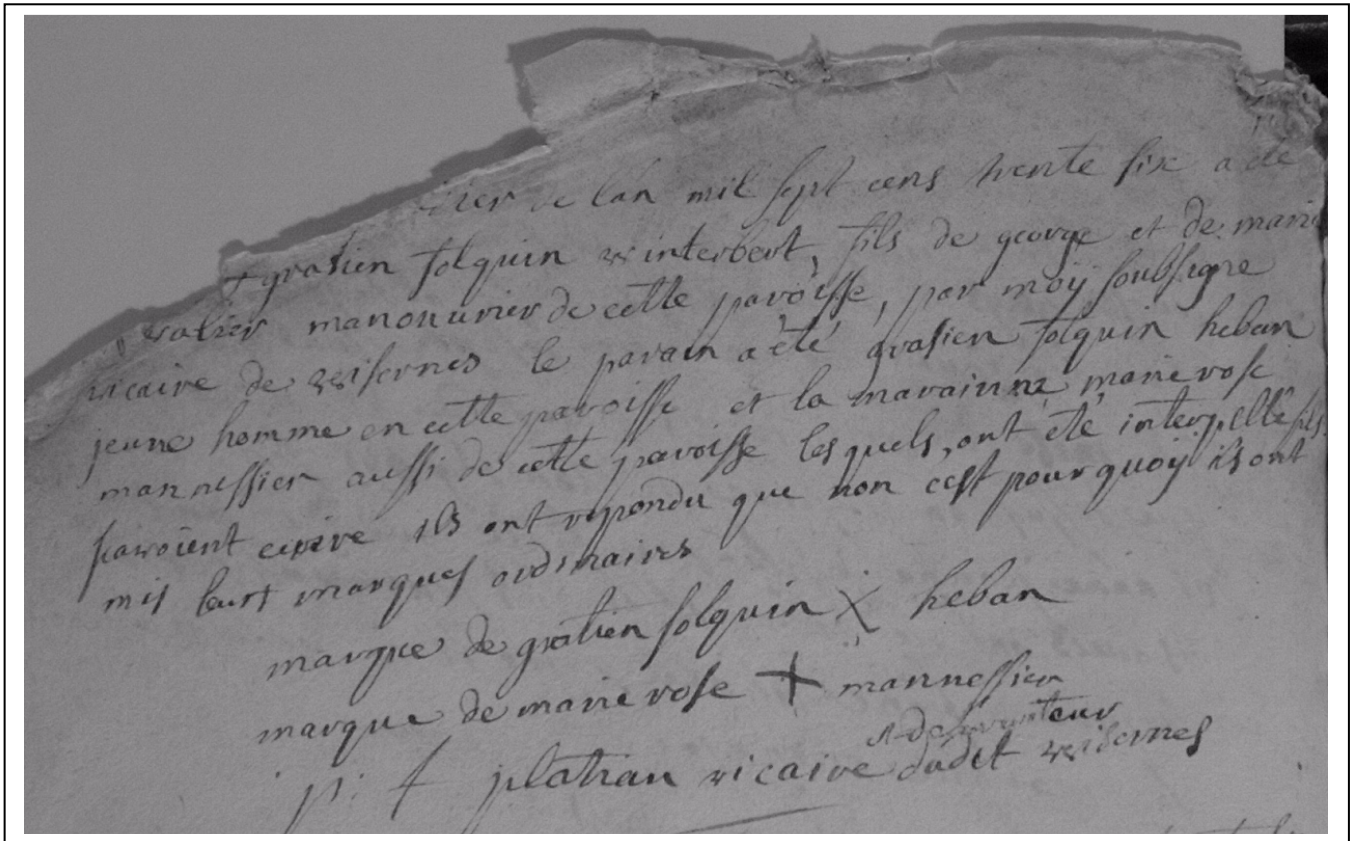 de lan mil sept cens trente six a été
gratien folquin winterbert, fils de george et de marie
manonurier de cette paroisse, par moÿ soubsigne
vicaire de wisernes le parain a été gratien folquin heban
jeune homme en cette paroisse et la marainne marie rose
mannessier aussi de cette paroisse lesquels ont été interpellé sils
savoient ecrire ils ont repondu que non cest pourquoÿ ils ont
mis leurs marques ordinaires
marque de gratien folquin X heban
marque de marie rose + mannessier
p: f platiau vicaire dudit wisernes